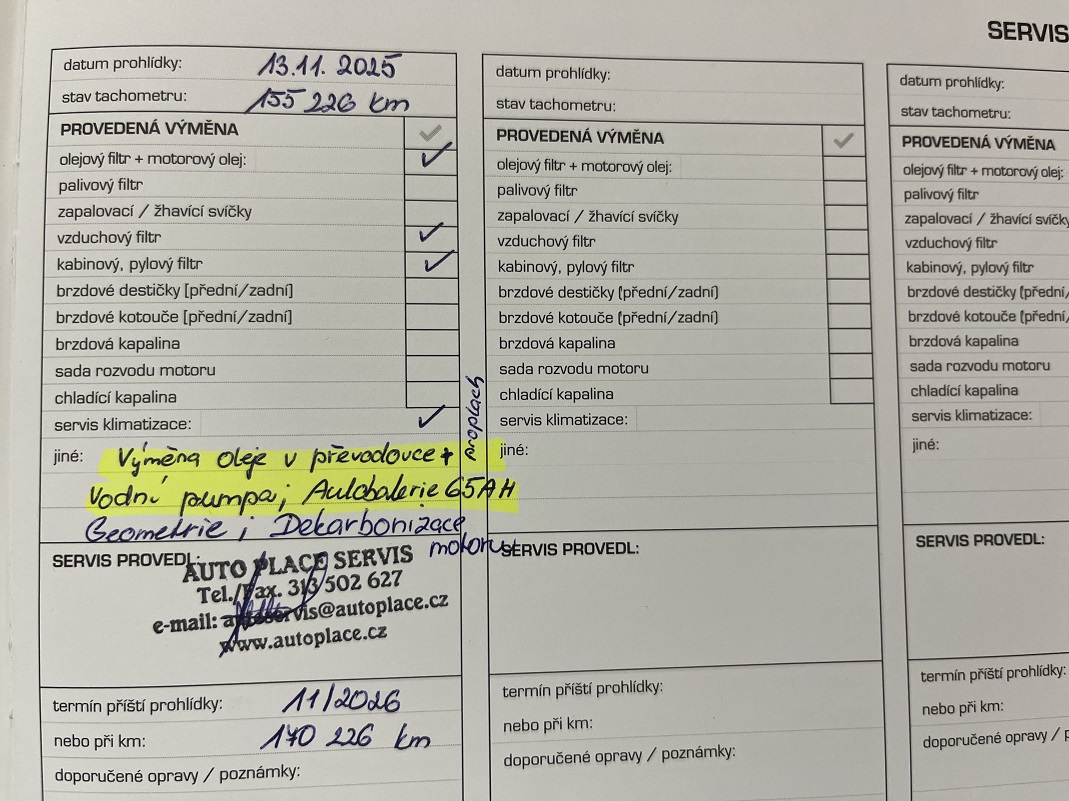 SERVIS
datum prohlídky: 13.11. 2025
stav tachometru: 155 226 km
PROVEDENÁ VÝMĚNA
olejový filtr + motorový olej:
palivový filtr
zapalovací / žhavící svíčky
vzduchový filtr
kabinový, pylový filtr
brzdové destičky [přední/zadní]
brzdové kotouče [přední/zadní]
brzdová kapalina
sada rozvodu motoru
chladící kapalina
servis klimatizace:
jiné: Výměna oleje v převodovce + proplach
Vodní pumpa; Autobaterie 65AH
Geometrie; Dekarbonizace
motoru
SERVIS PROVEDL:
AUTO PLACE SERVIS
Tel./Fax. 313 502 627
e-mail: autoservis@autoplace.cz
www.autoplace.cz
termín příští prohlídky: 11/2026
nebo při km: 170 226 km
doporučené opravy / poznámky:
datum prohlídky:
stav tachometru:
PROVEDENÁ VÝMĚNA
olejový filtr + motorový olej:
palivový filtr
zapalovací / žhavící svíčky
vzduchový filtr
kabinový, pylový filtr
brzdové destičky (přední/zadní)
brzdové kotouče (přední/zadní)
brzdová kapalina
sada rozvodu motoru
chladící kapalina
servis klimatizace:
jiné:
SERVIS PROVEDL:
termín příští prohlídky:
nebo při km:
doporučené opravy / poznámky:
datum prohlídky:
stav tachometru:
PROVEDENÁ VÝMĚNA
olejový filtr + motorový olej:
palivový filtr
zapalovací / žhavící svíčky
vzduchový filtr
kabinový, pylový filtr
brzdové destičky (přední/
brzdové kotouče (přední/
brzdová kapalina
sada rozvodu motoru
chladící kapalina
servis klimatizace:
jiné:
SERVIS PROVEDL:
termín příští prohlídky:
nebo při km:
doporučené opravy / p